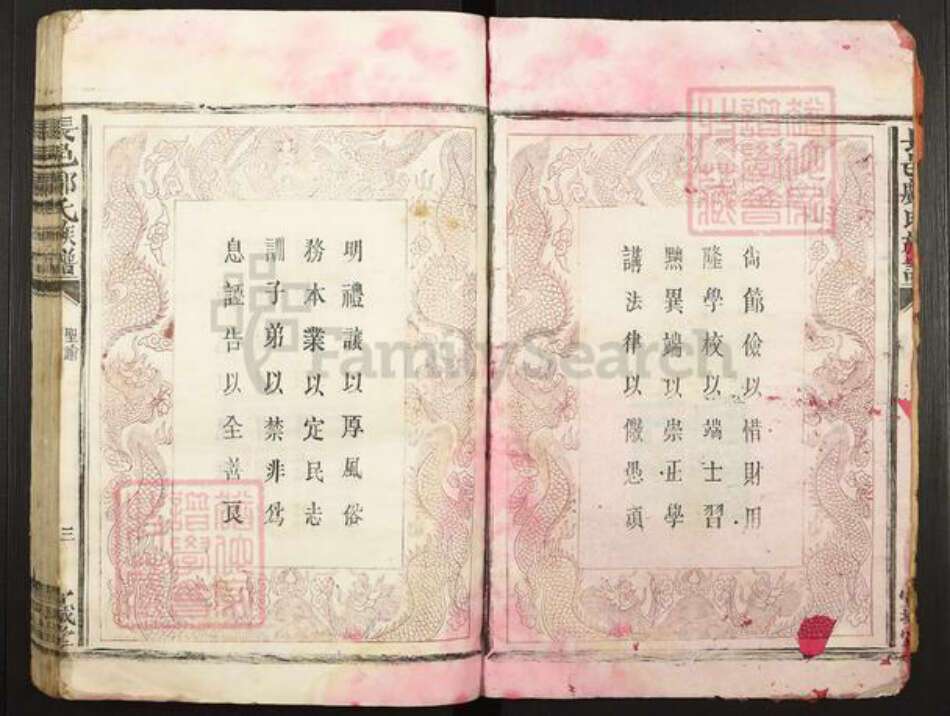 尙節儉以惜財用
隆學校以端士習
黜異端以崇正學
講法律以儆愚頑
明禮讓以厚風俗
務本業以定民志
訓子弟以禁非爲
息誣告以全善良
長邑鄺氏族譜
聖諭
三
FamilySearch